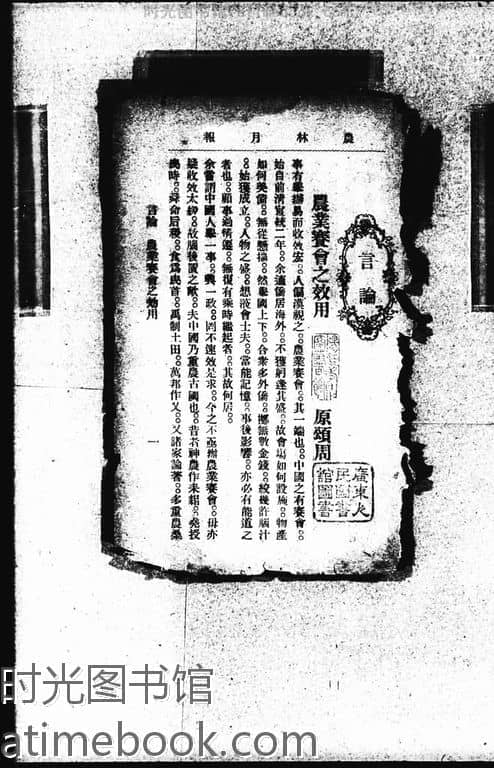 时光图书馆
農林月報
言論
農業賽會之效用
原頌周
廣東人民圖書館圖書
事有舉辦易而收效宏。人偏漠視之。農業賽會。其一端也。中國之有賽會。
始自前清宣統二年。余適僑居海外。不獲躬逢其盛。故會場如何設施。物產
如何美備。無從懸揣。然舉國上下。合衆多外僑。擲無數金錢。絞幾許腦汁
。始獲成立。人物之盛。想液會士夫。當能記憶。事後影響。亦必有能道之
者也。顧事過情遷。無復有乘時繼起者。其故何居。
余嘗謂中國人舉一事。興一政。罔不速效是求。今之不亟辦農業賽會。毋亦
疑收效太緩。故腦後置之歟。夫中國乃重農古國也。昔者神農作耒耜。堯授
民時。舜命后稷。食爲民首。禹制土田。萬邦作乂。又諸家論著。多重農桑
言論 農業賽會之効用
一
时光图书馆
atimebook.com